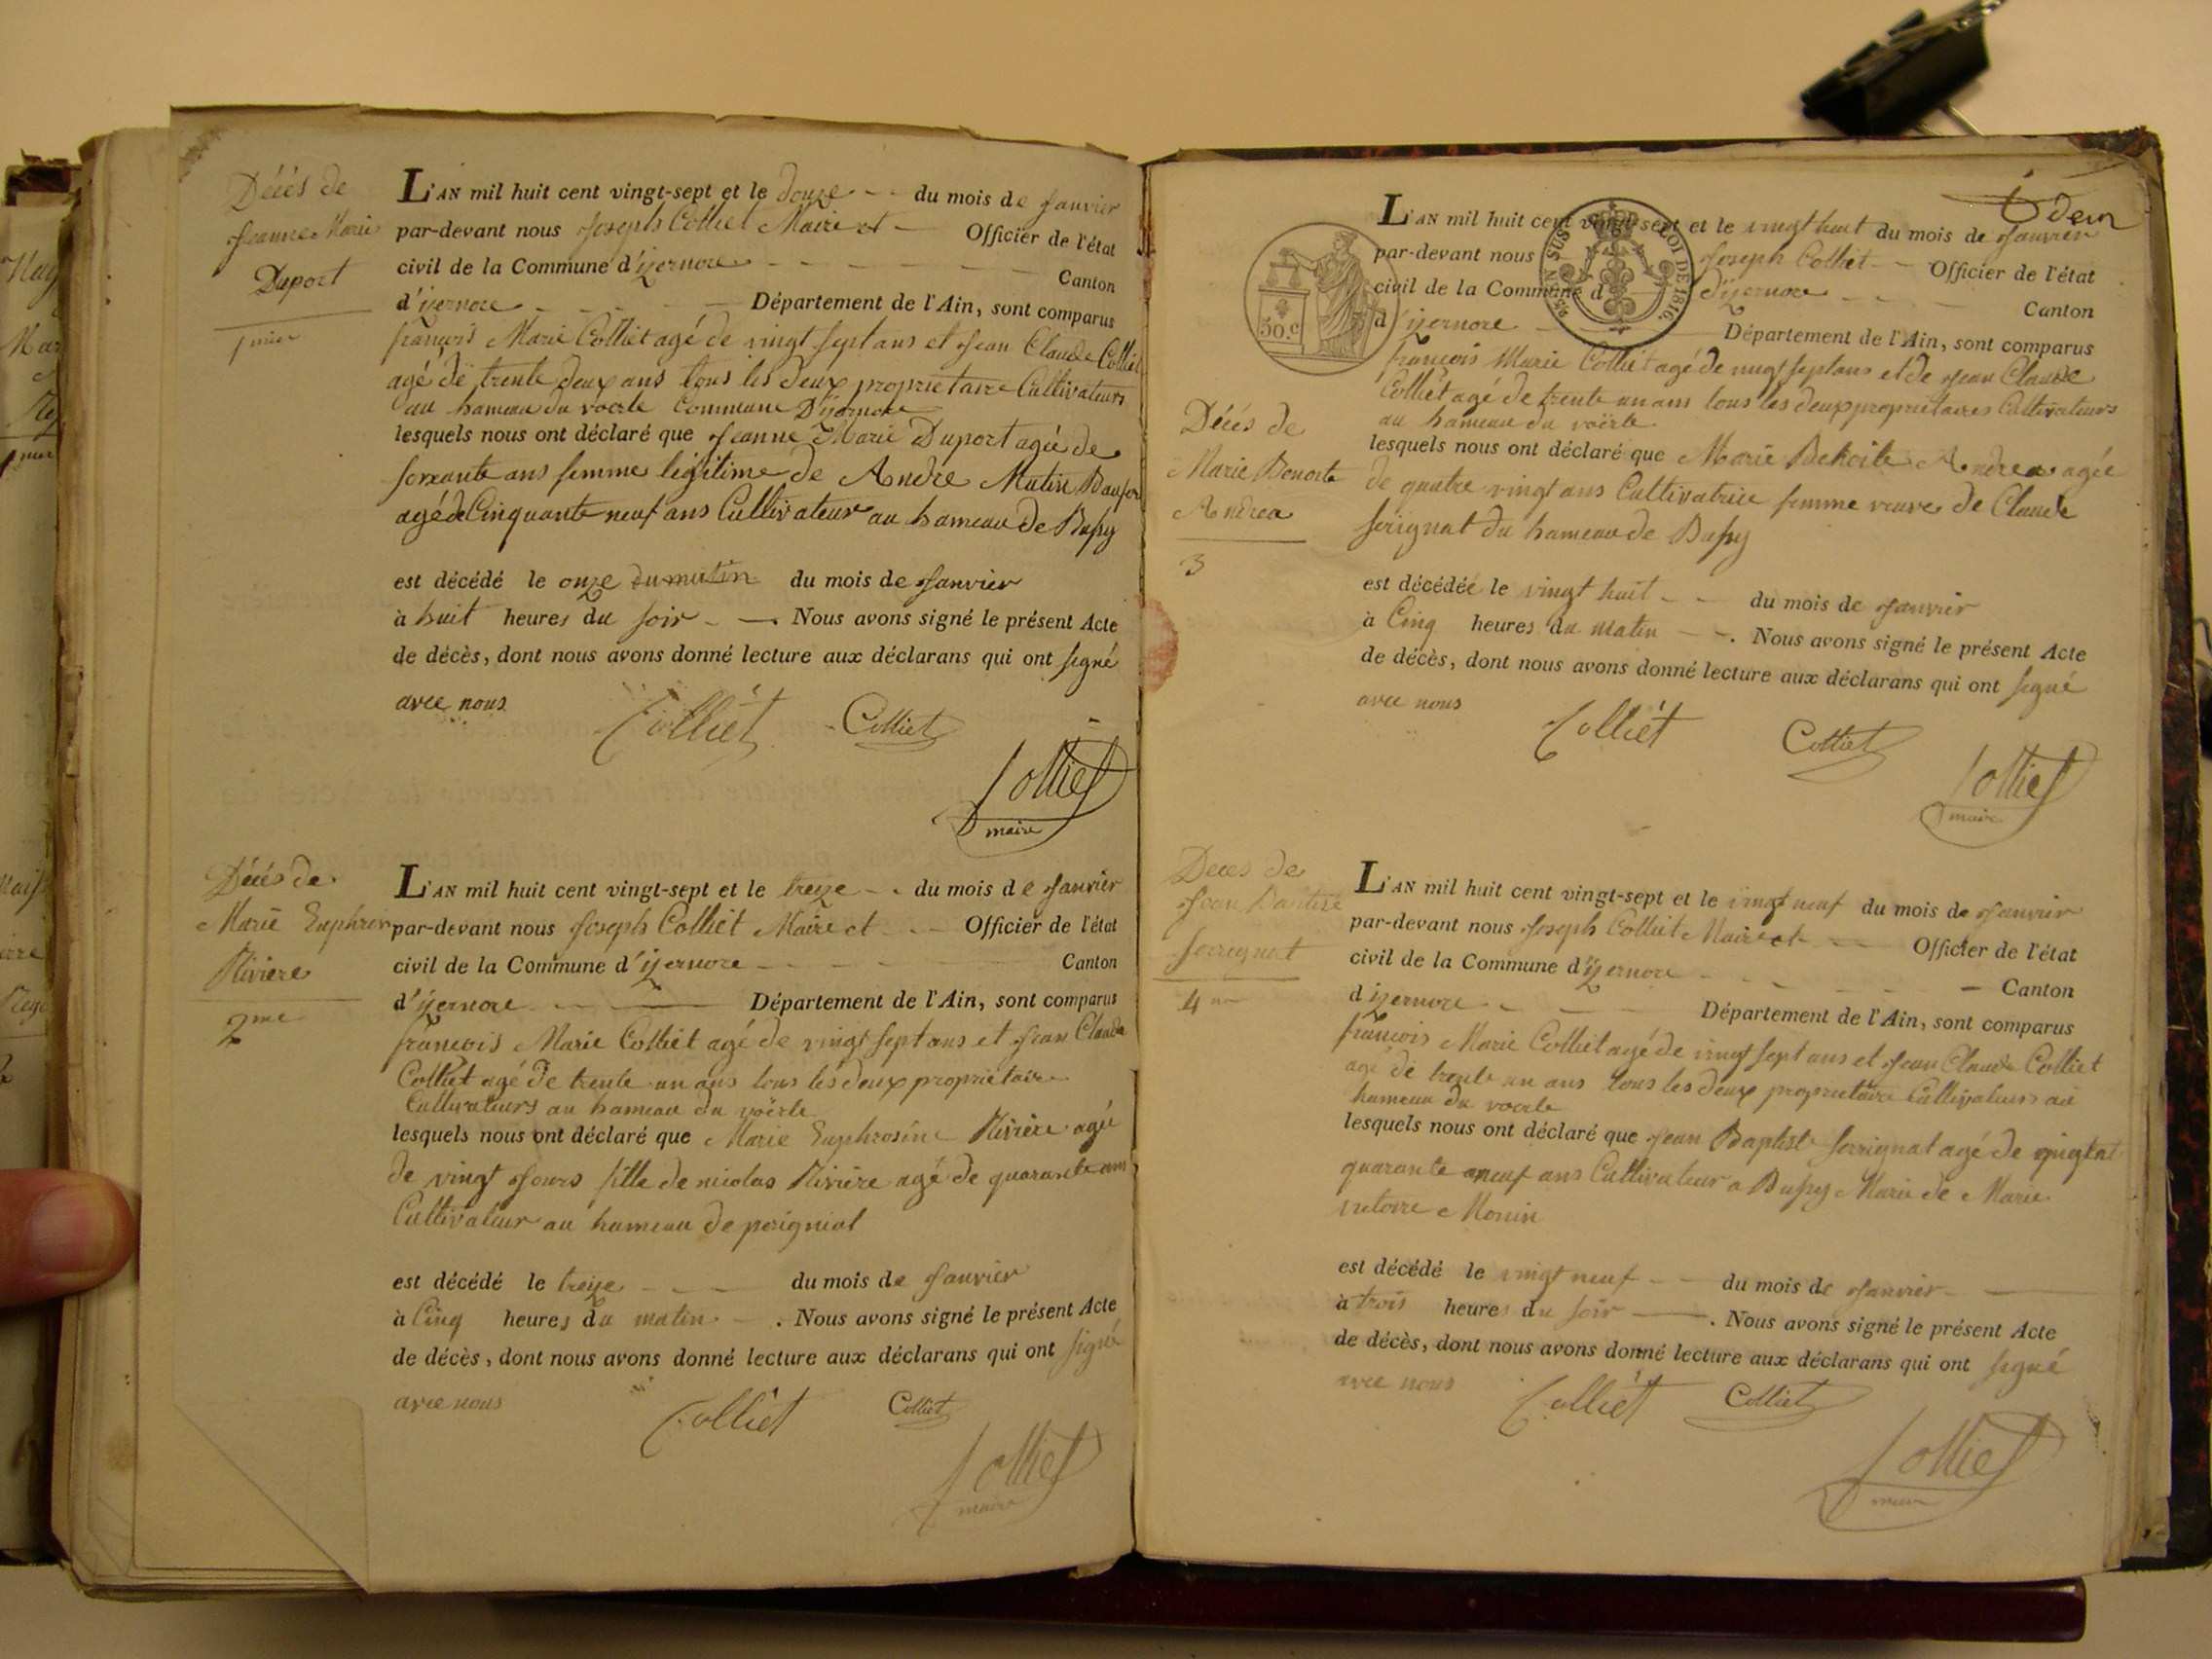 Décés de
Jeanne Marie
Duport
1mier
L'AN mil huit cent vingt-sept et le douze du mois de Janvier
par-devant nous Joseph Colliet Maire et Officier de l'état
civil de la Commune d'izernore Canton
d'izernore Département de l'Ain, sont comparus
françois Marie Colliet agé de vingt sept ans et Jean Claude Colliet
agé de trente deux ans tous les deux proprietaire Cultivateurs
au hameau du voërle Commune D'izernore
lesquels nous ont déclaré que Jeanne Marie Duport agée de
soixante ans femme legitime de Andre Matin
agé de Cinquante neuf ans Cultivateur au hameau de Bussy
est décédé le onze du matin du mois de Janvier
à huit heures du soir . Nous avons signé le présent Acte
de décès, dont nous avons donné lecture aux déclarans qui ont signé
avec nous
Colliet Colliet
Colliet
maire
Décés de
Marie Euphrosin
Riviere
2me
L'AN mil huit cent vingt-sept et le treize du mois de Janvier
par-devant nous Joseph Colliet Maire et Officier de l'état
civil de la Commune d'izernore Canton
d'izernore Département de l'Ain, sont comparus
francois Marie Colliet agé de vingt sept ans et Jean Claude
Colliet agé de trente un ans tous les deux proprietaire
Cultivateurs au hameau du voërle
lesquels nous ont déclaré que Marie Euphrosine Riviere agée
de vingt Jours fille de nicolas Riviere agé de quarante ans
Cultivateur au hameau de perigniat
est décédé le treize du mois de Janvier
à Cinq heures du matin . Nous avons signé le présent Acte
de décès, dont nous avons donné lecture aux déclarans qui ont signé
avec nous
Colliet Colliet
Colliet
maire
6
LOI DE 1816.
50.c
L'AN mil huit cent vingt-sept et le vingt huit du mois de Janvier
par-devant nous Joseph Colliet Officier de l'état
civil de la Commune d d'izernore Canton
d'izernore Département de l'Ain, sont comparus
françois Marie Colliet agé de vingt sept ans et de Jean Claude
Colliet agé de trente un ans tous les deux proprietaires Cultivateurs
au hameau du voërle
Décés de
Marie Benoite
Andrea
3
lesquels nous ont déclaré que Marie Benoite Andrea agée
de quatre vingt ans Cultivatrice femme veuve de Claude
serignat du hameau de Bussy
est décédée le vingt huit du mois de Janvier
à Cinq heures du matin . Nous avons signé le présent Acte
de décès, dont nous avons donné lecture aux déclarans qui ont signé
avec nous
Colliet Colliet
Colliet
maire
Deces de
Jean Baptiste
serregnat
4
L'AN mil huit cent vingt-sept et le vingt neuf du mois de Janvier
par-devant nous Joseph Colliet Maire et Officier de l'état
civil de la Commune d'izernore Canton
d izernore Département de l'Ain, sont comparus
francois Marie Colliet agé de vingt sept ans et Jean Claude Colliet
agé de trente un ans tous les deux proprietaire Cultivateurs au
hameau du voërle
lesquels nous ont déclaré que Jean Baptiste serrignat agé de
quarante neuf ans Cultivateur a Bussy Marie de Marie
victoire Monin
est décédé le vingt neuf du mois de Janvier
à trois heures du soir . Nous avons signé le présent Acte
de décès, dont nous avons donné lecture aux déclarans qui ont signé
avec nous
Colliet Colliet
Colliet
maire